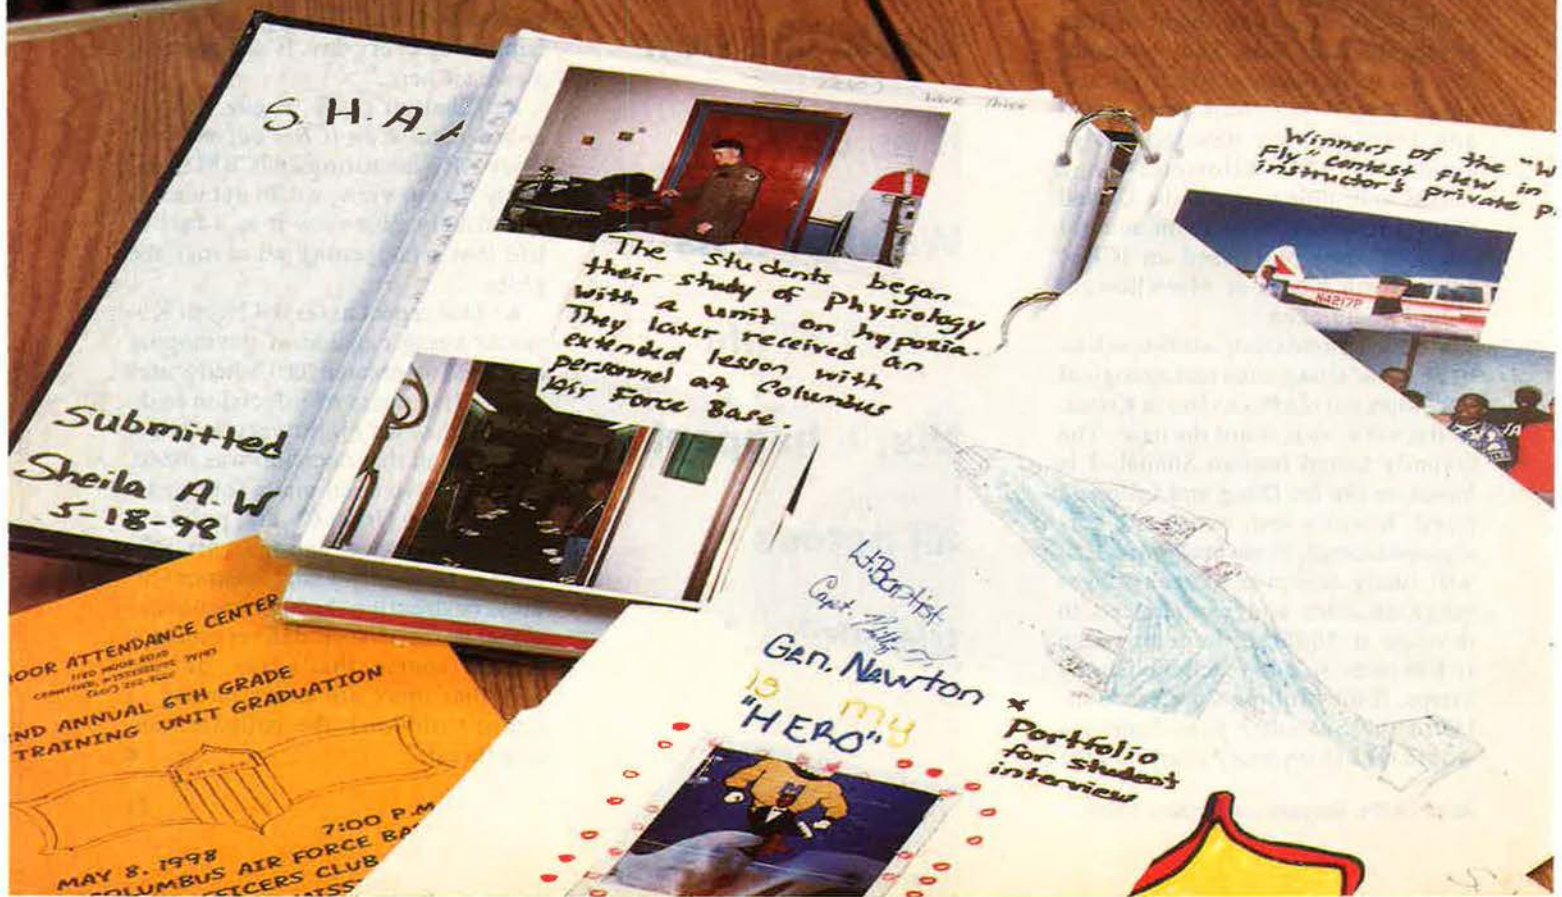 S. H. A. A
Submitted
Sheila A. W
5-18-98
The students began
their study of Physiology
with a unit on hypoxia.
They later received an
extended lesson with
personnel at Columbus
Air Force Base.
Winners of the "W
Fly" contest flew in
instructor's private p
N4217P
JA
OOR ATTENDANCE CENTER
MOOR ROAD
CRAWFORD, MISSISSIPPI
ND ANNUAL 6TH GRADE
TRAINING UNIT GRADUATION
7:00 P.M
MAY 8, 1998
OLUMBUS AIR FORCE BA
FFICERS CLUB
MISS
Lt. Baptist
Capt.
Gen. Newton
is my
"HERO"
Portfolio
for student
interview